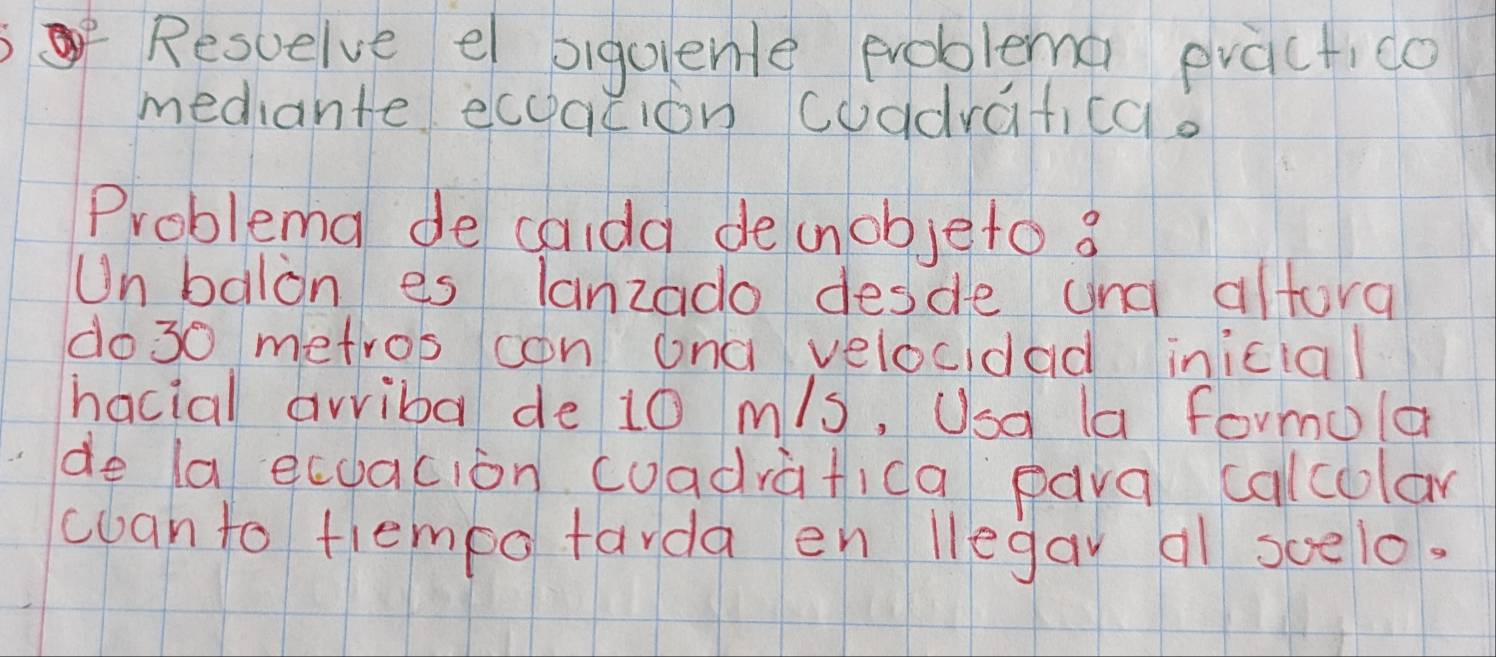 Resuelve el siguiente problema pràctico
mediante ecuación cuadrática.
Problema de caida de un objeto:
Un balòn es lanzado desde una altura
do 30 metros con una velocidad inicial
hacial arriba de 10 m/s. Usa la formula
de la ecuaciòn cuadràtica para calcular
cuanto tiempo tarda en llegar al suelo.